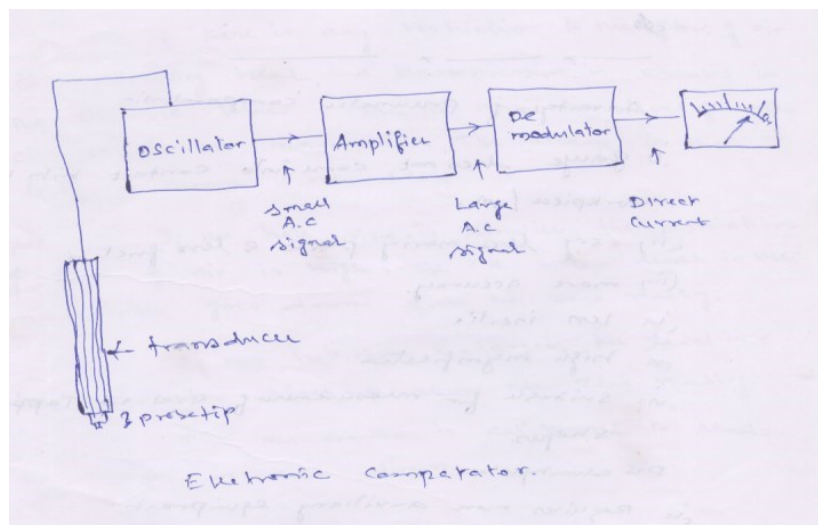 Oscillator
Amplifier
De
modulator
small
A.C
signal
Large
A.C
signal
Direct
Current
transducer
probetip
Electronic Comparator.